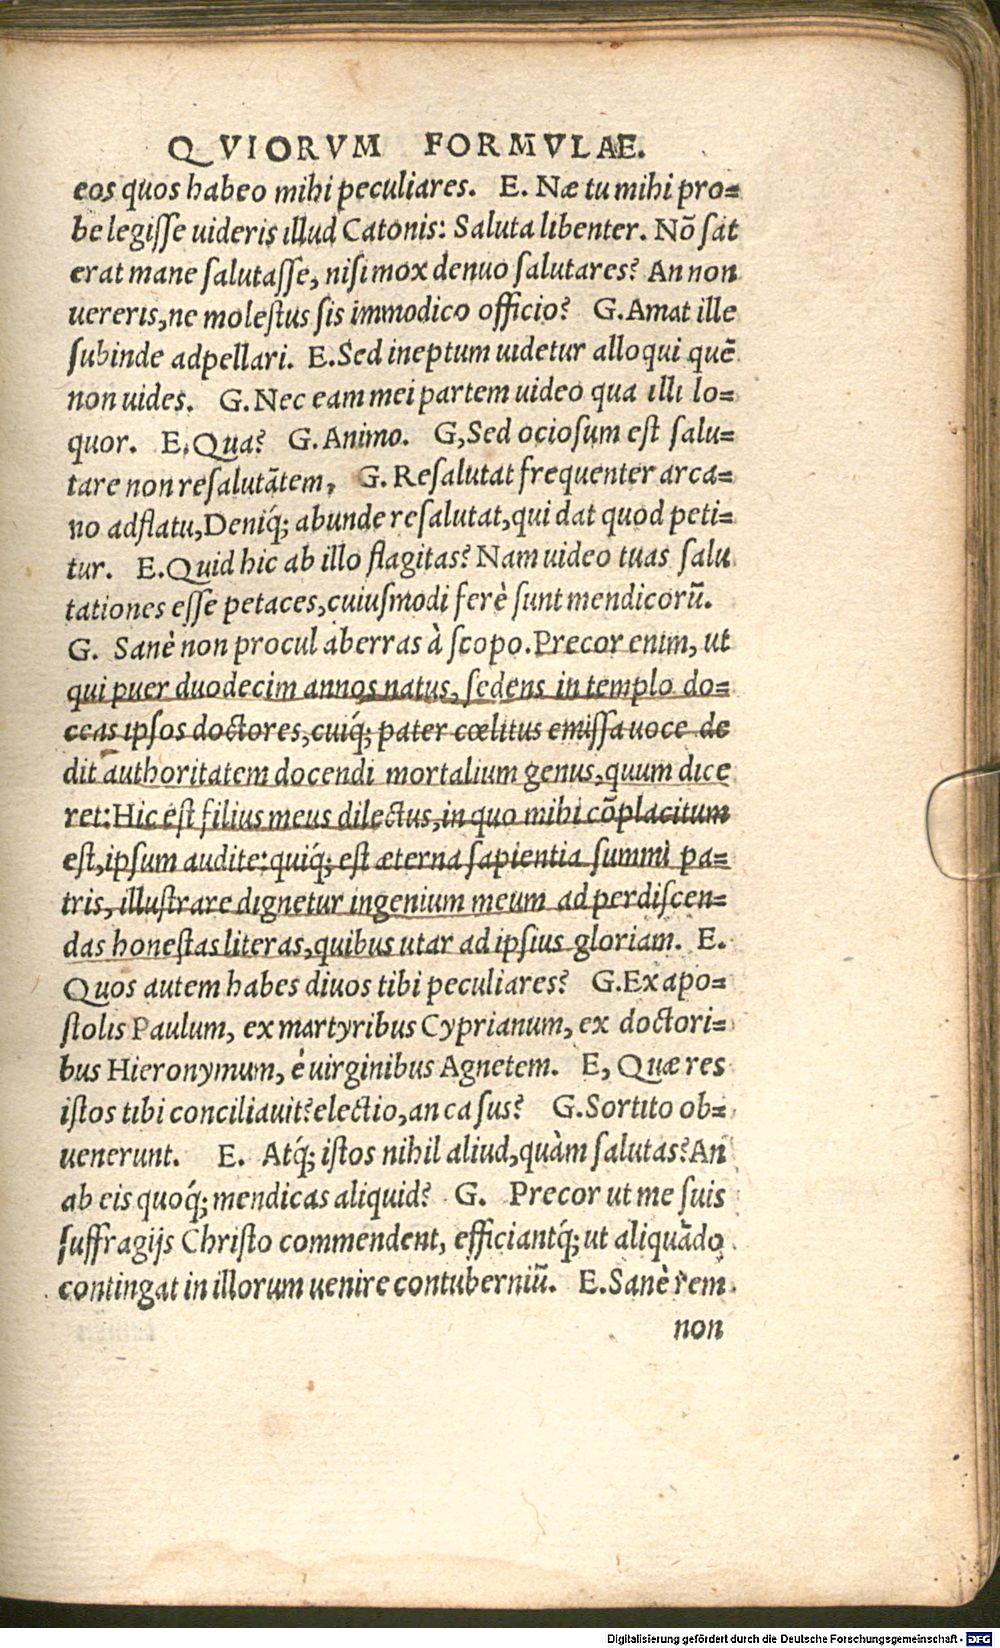 QVIORVM FORMVLAE.
eos quos habeo mihi peculiares. E. Næ tu mihi pro=
be legisse uideris illud Catonis: Saluta libenter. Nõ sat
erat mane salutasse, nisi mox denuo salutares? An non
uereris, ne molestus sis immodico officio? G. Amat ille
subinde adpellari. E. Sed ineptum uidetur alloqui quẽ
non uides. G. Nec eam mei partem uideo qua illi lo=
quor. E. Qua? G. Animo. G, Sed ociosum est salu=
tare non resalutãtem, G. Resalutat frequenter arca=
no adflatu, Deniq́; abunde resalutat, qui dat quod peti=
tur. E. Quid hic ab illo flagitas? Nam uideo tuas salu
tationes esse petaces, cuiusmodi ferè sunt mendicorũ.
G. Sanè non procul aberras à scopo. Precor enim, ut
qui puer duodecim annos natus, sedens in templo do=
ceas ipsos doctores, cuiq́; pater cœlitus emissa uoce de
dit authoritatem docendi mortalium genus, quum dice
ret: Hic est filius meus dilectus, in quo mihi cõplacitum
est, ipsum audite: quiq́; est æterna sapientia summi pa=
tris, illustrare dignetur ingenium meum ad perdiscen=
das honestas literas, quibus utar ad ipsius gloriam. E.
Quos autem habes diuos tibi peculiares? G. Ex apo=
stolis Paulum, ex martyribus Cyprianum, ex doctori=
bus Hieronymum, è uirginibus Agnetem. E, Quæ res
istos tibi conciliauit? electio, an casus? G. Sortito ob=
uenerunt. E. Atq́; istos nihil aliud, quàm salutas? An
ab eis quoq́; mendicas aliquid? G. Precor ut me suis
suffragijs Christo commendent, efficiantq́; ut aliquãdo
contingat in illorum uenire contuberniũ. E. Sanè rem
non
Digitalisierung gefördert durch die Deutsche Forschungsgemeinschaft - DFG